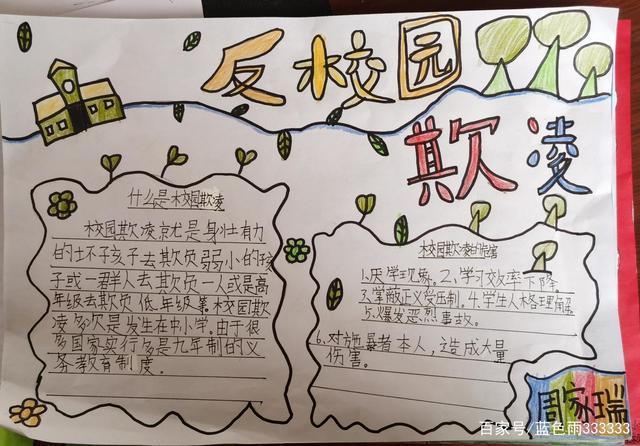 反校园
欺凌
什么是校园欺凌
校园欺凌就是身壮有力
的坏孩子去欺负弱小的孩
子或一群人去欺负一人或是高
年级去欺负低年级等。校园欺
凌多次是发生在中小学。由于很
多国家实行多是九年制的义
务教育制度。
校园欺凌的危害
1.厌学现象。2、学习效率下降
3、掌蔽正义受压制。4.学生人格理解
5、爆发恶烈事故。
6、对施暴者本人，造成大量
伤害。
周家瑞
百家号/蓝色雨333333